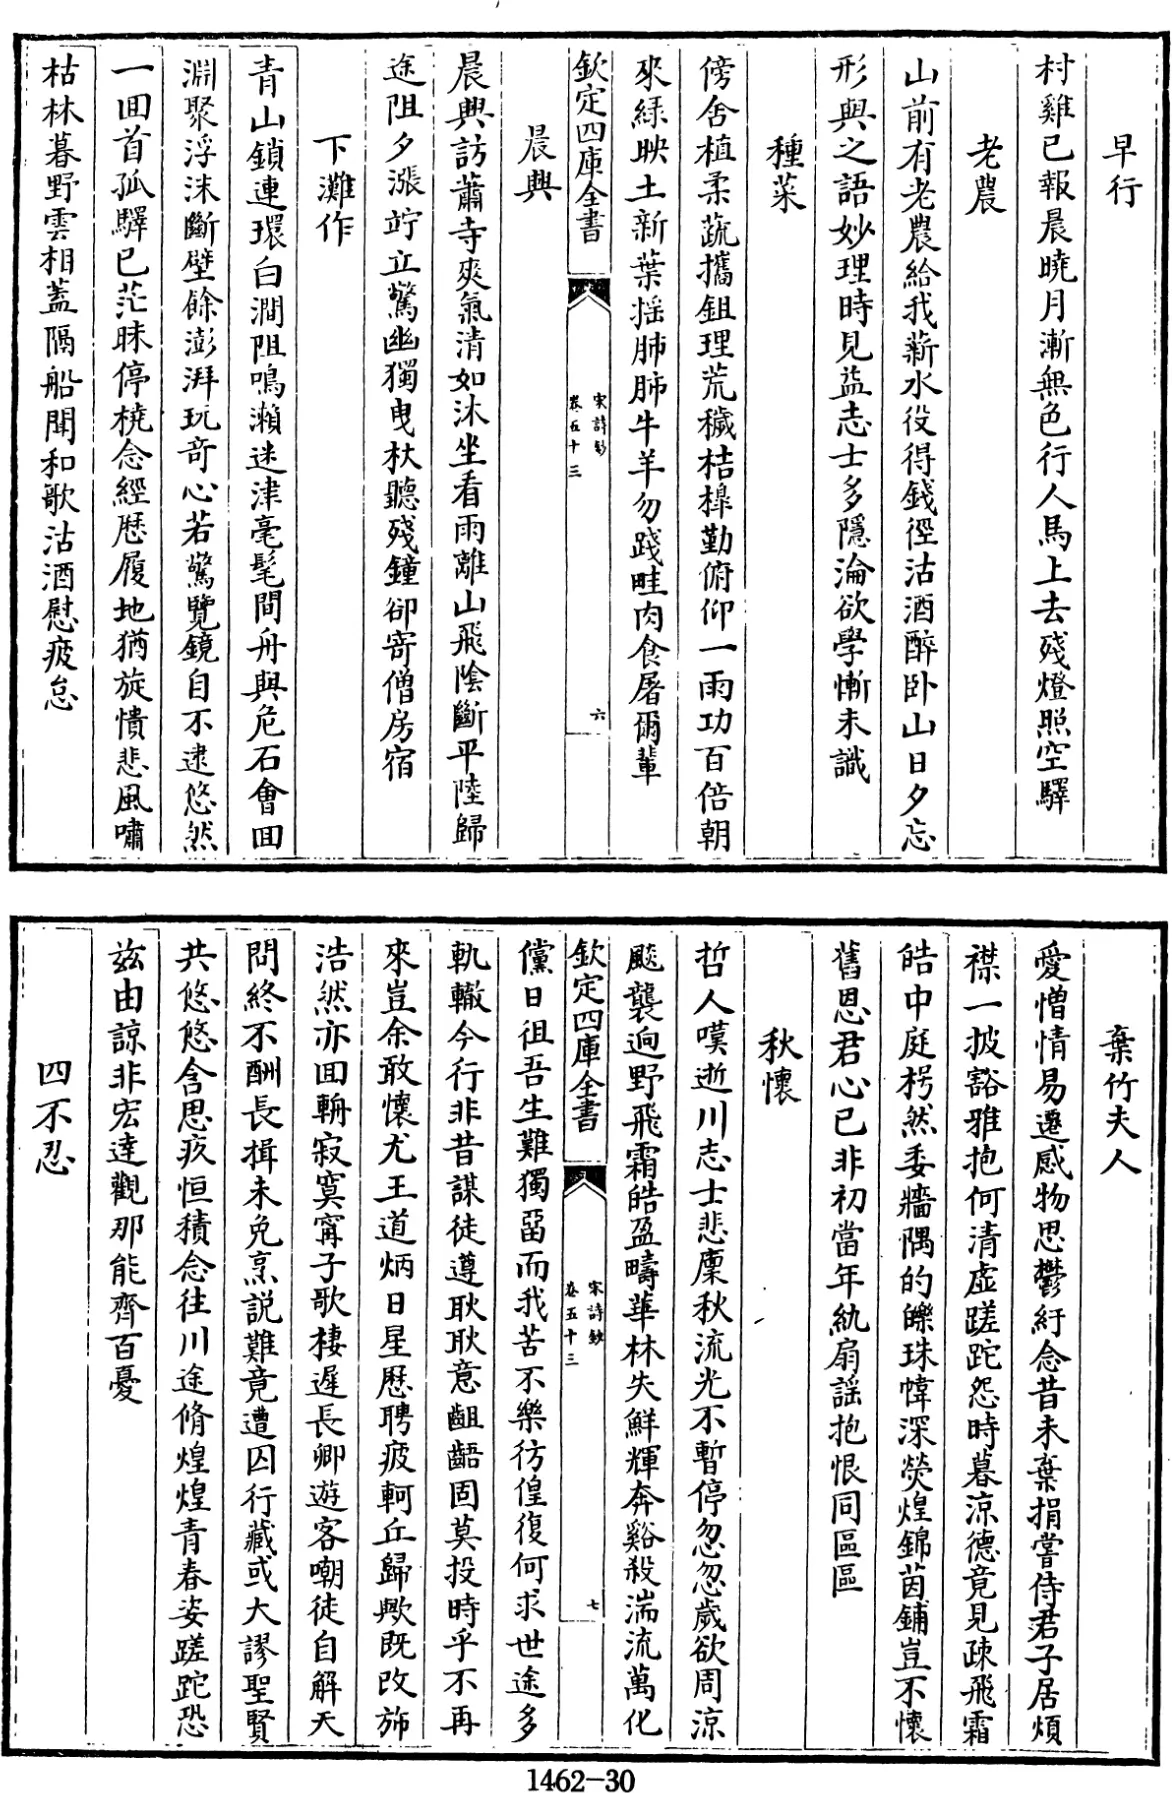 早行
村雞已報晨曉月漸無色行人馬上去殘燈照空驛
老農
山前有老農給我薪水役得錢徑沽酒醉卧山日夕忘
形與之語妙理時見益志士多隱淪欲學慚未識
種菜
傍舍植柔蔬攜鉏理荒穢桔槹勤俯仰一雨功百倍朝
來綠映土新葉揺肺肺牛羊勿踐畦肉食屠爾輩
欽定四庫全書
宋詩鈔
卷五十三
六
晨興
晨興訪蕭寺爽氣清如沐坐看雨離山飛陰斷平陸歸
途阻夕漲竚立驚幽獨曳杖聽殘鐘卻寄僧房宿
下灘作
青山鎖連環白澗阻鳴瀨迷津毫髦間舟與危石會回
淵聚浮沫斷壁餘澎湃玩奇心若驚覽鏡自不逮悠然
一回首孤驛已茫昧停橈念經歴履地猶旋憒悲風嘯
枯林暮野雲相蓋隔船聞和歌沽酒慰疲怠
棄竹夫人
愛憎情易遷感物思鬱紆念昔未棄捐嘗侍君子居煩
襟一披豁雅抱何清虚蹉跎怨時暮涼德竟見疎飛霜
皓中庭枵然委牆隅的皪珠幃深熒煌錦茵鋪豈不懷
舊恩君心已非初當年紈扇謡抱恨同區區
秋懷
哲人嘆逝川志士悲廩秋流光不暫停忽忽歲欲周涼
飈襲迥野飛霜皓盈疇華林失鮮輝奔谿殺湍流萬化
欽定四庫全書
宋詩鈔
卷五十三
七
儻日徂吾生難獨留而我苦不樂彷徨復何求世途多
軌轍今行非昔謀徒遵耿耿意齟齬固莫投時乎不再
來豈余敢懷尤王道炳日星歴聘疲軻丘歸歟既改斾
浩然亦回輈寂寞甯子歌棲遲長卿遊客嘲徒自解天
問終不酬長揖未免烹説難竟遭囚行藏或大謬聖賢
共悠悠含思疚恒積念往川途脩煌煌青春姿蹉跎恐
兹由諒非宏達觀那能齊百憂
四不忍
1462-30